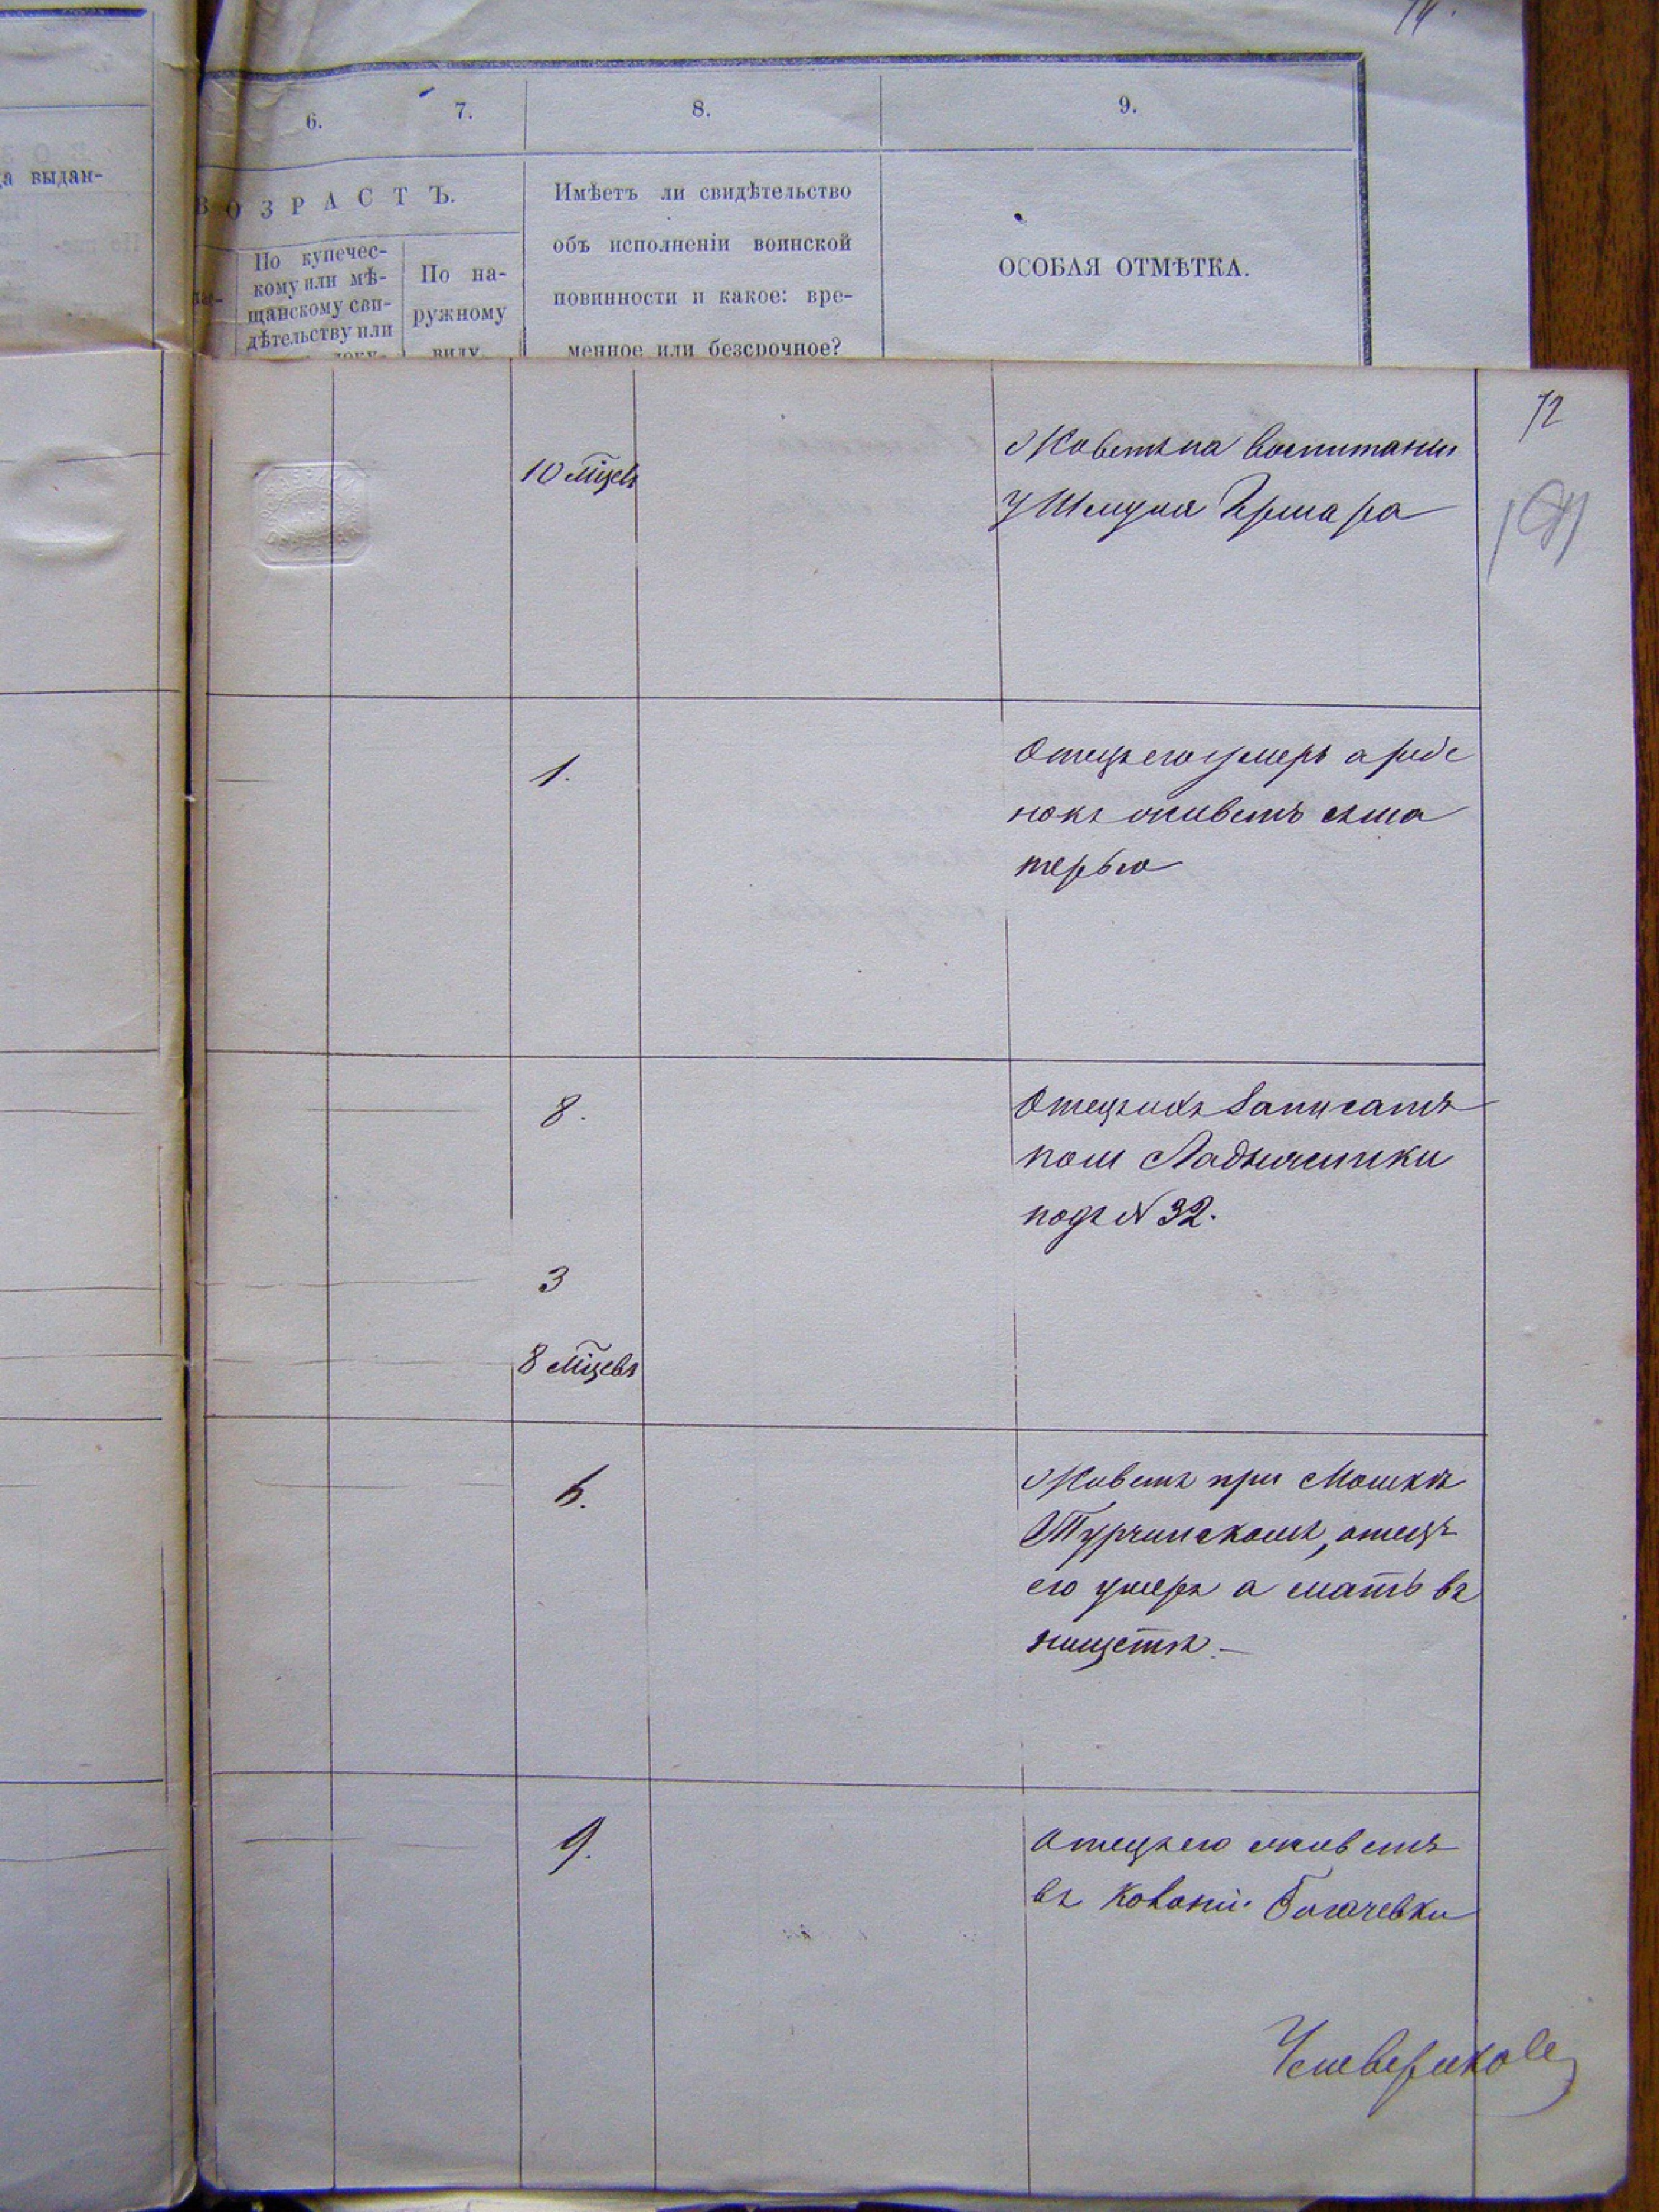 а выдан-
6.
7.
8.
9.
ВОЗРАСТЪ.
По купечес-
кому или мѣ-
щанскому сви-
дѣтельству или
По на-
ружному
виду
Имѣетъ ли свидѣтельство
объ исполненіи воинской
повинности и какое: вре-
менное или безсрочное?
ОСОБАЯ ОТМѢТКА.
72
10 мѣцевъ
Живетъ на воспитаніи
у Шмуля
1.
Отецъ его умеръ а ребе
нокъ живетъ съ ма
терью
8.
Отецъ ихъ записанъ
пом
подъ N 32.
3
8 мѣцевъ
6.
Живетъ при Мошкѣ
Турчинскомъ, отецъ
его умеръ а мать въ
нищетѣ. —
9.
Отецъ его живетъ
въ Колоніи Богачевки
Четвериковъ